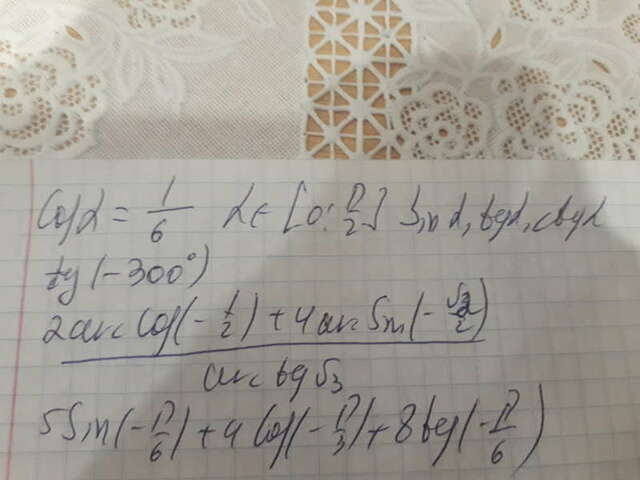 cos α = 1/6 α ∈ [0; π/2] sin α, tg α, ctg α
tg(-300°)
(2 arccos(-1/2) + 4 arcsin(-√3/2)) / arctg √3
5 sin(-π/6) + 4 cos(-π/3) + 8 tg(-π/6)